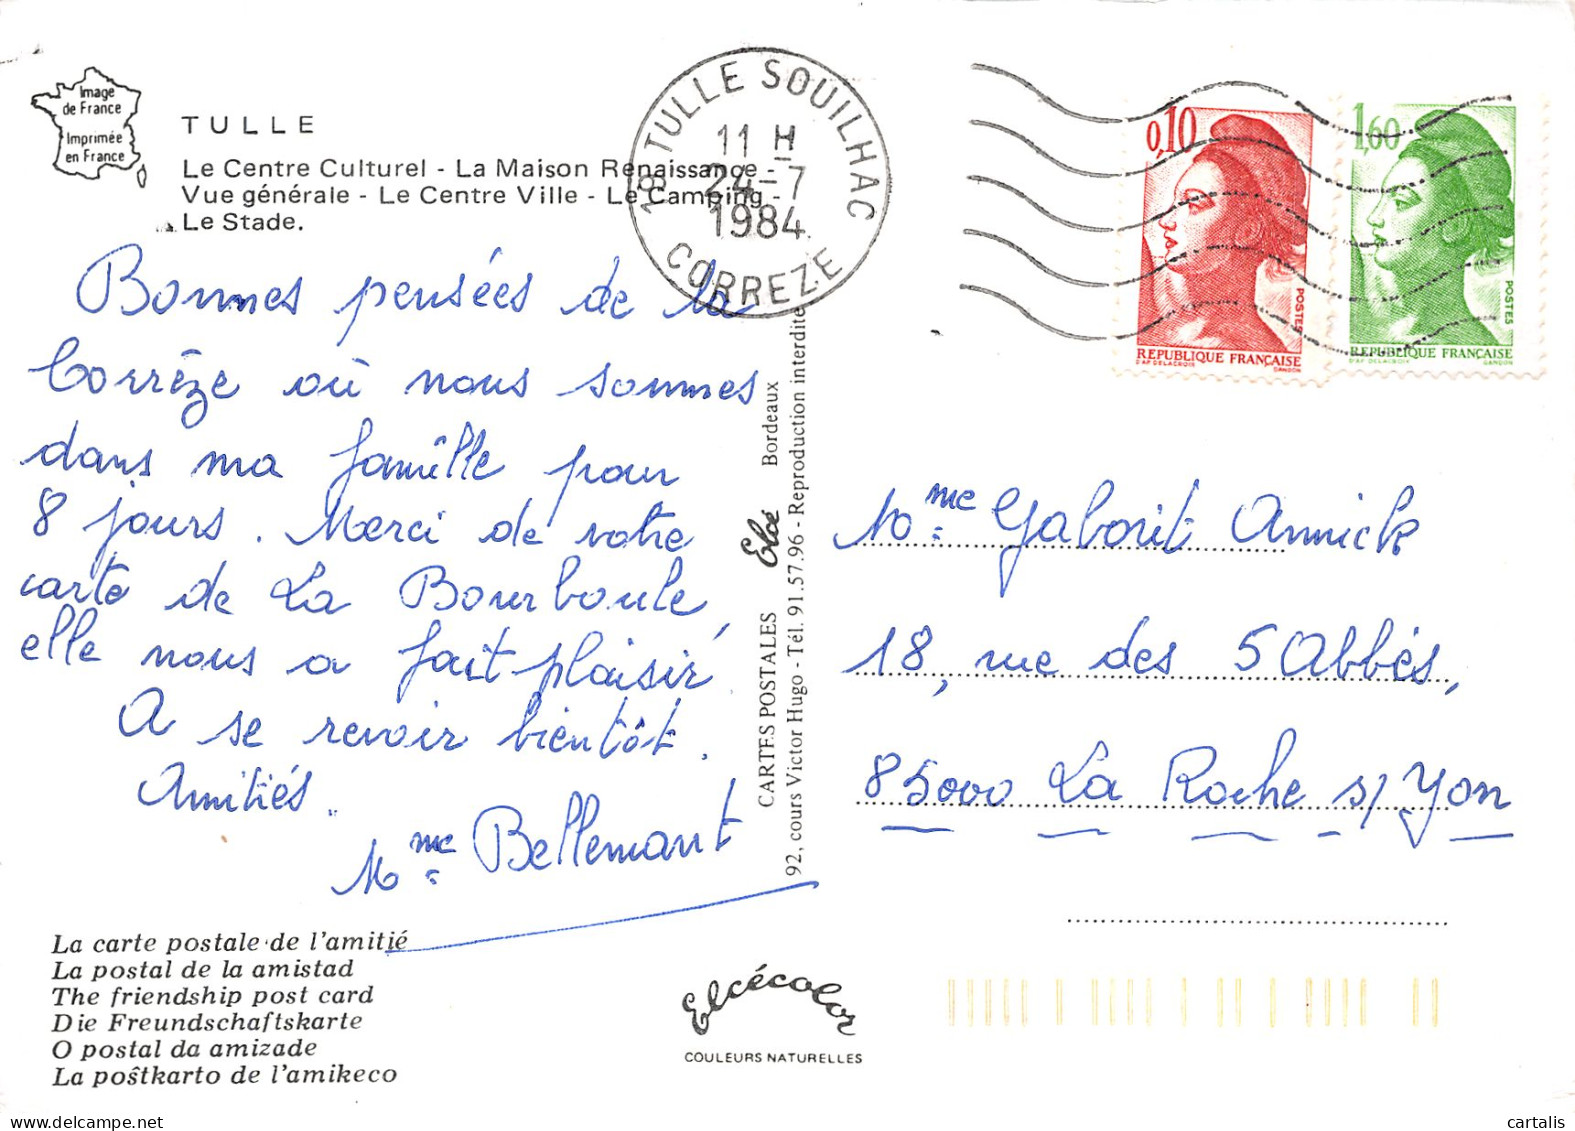 Image
de France
Imprimée
en France
TULLE
Le Centre Culturel - La Maison Renaissance -
Vue générale - Le Centre Ville - Le Camping -
Le Stade.
18 TULLE SOUILHAC
11 H
24-7
1984
CORREZE
0,10
POSTES
REPUBLIQUE FRANÇAISE
D'AP DELACROIX
GANDON
1,60
POSTES
REPUBLIQUE FRANÇAISE
D'AP DELACROIX
GANDON
Bonnes pensées de la
Corrèze où nous sommes
dans ma famille pour
8 jours. Merci de votre
carte de La Bourboule,
elle nous a fait plaisir,
A se revoir bientôt.
Amitiés.
Mme Bellemant
CARTES POSTALES Elcé Bordeaux
92, cours Victor Hugo - Tél. 91.57.96 - Reproduction interdite
Mme Gaborit Annick
18, rue des 5 Abbés,
85000 La Roche s/Yon
La carte postale de l'amitié
La postal de la amistad
The friendship post card
Die Freundschaftskarte
O postal da amizade
La poŝtkarto de l'amikeco
Elcécolor
COULEURS NATURELLES
www.delcampe.net
cartalis